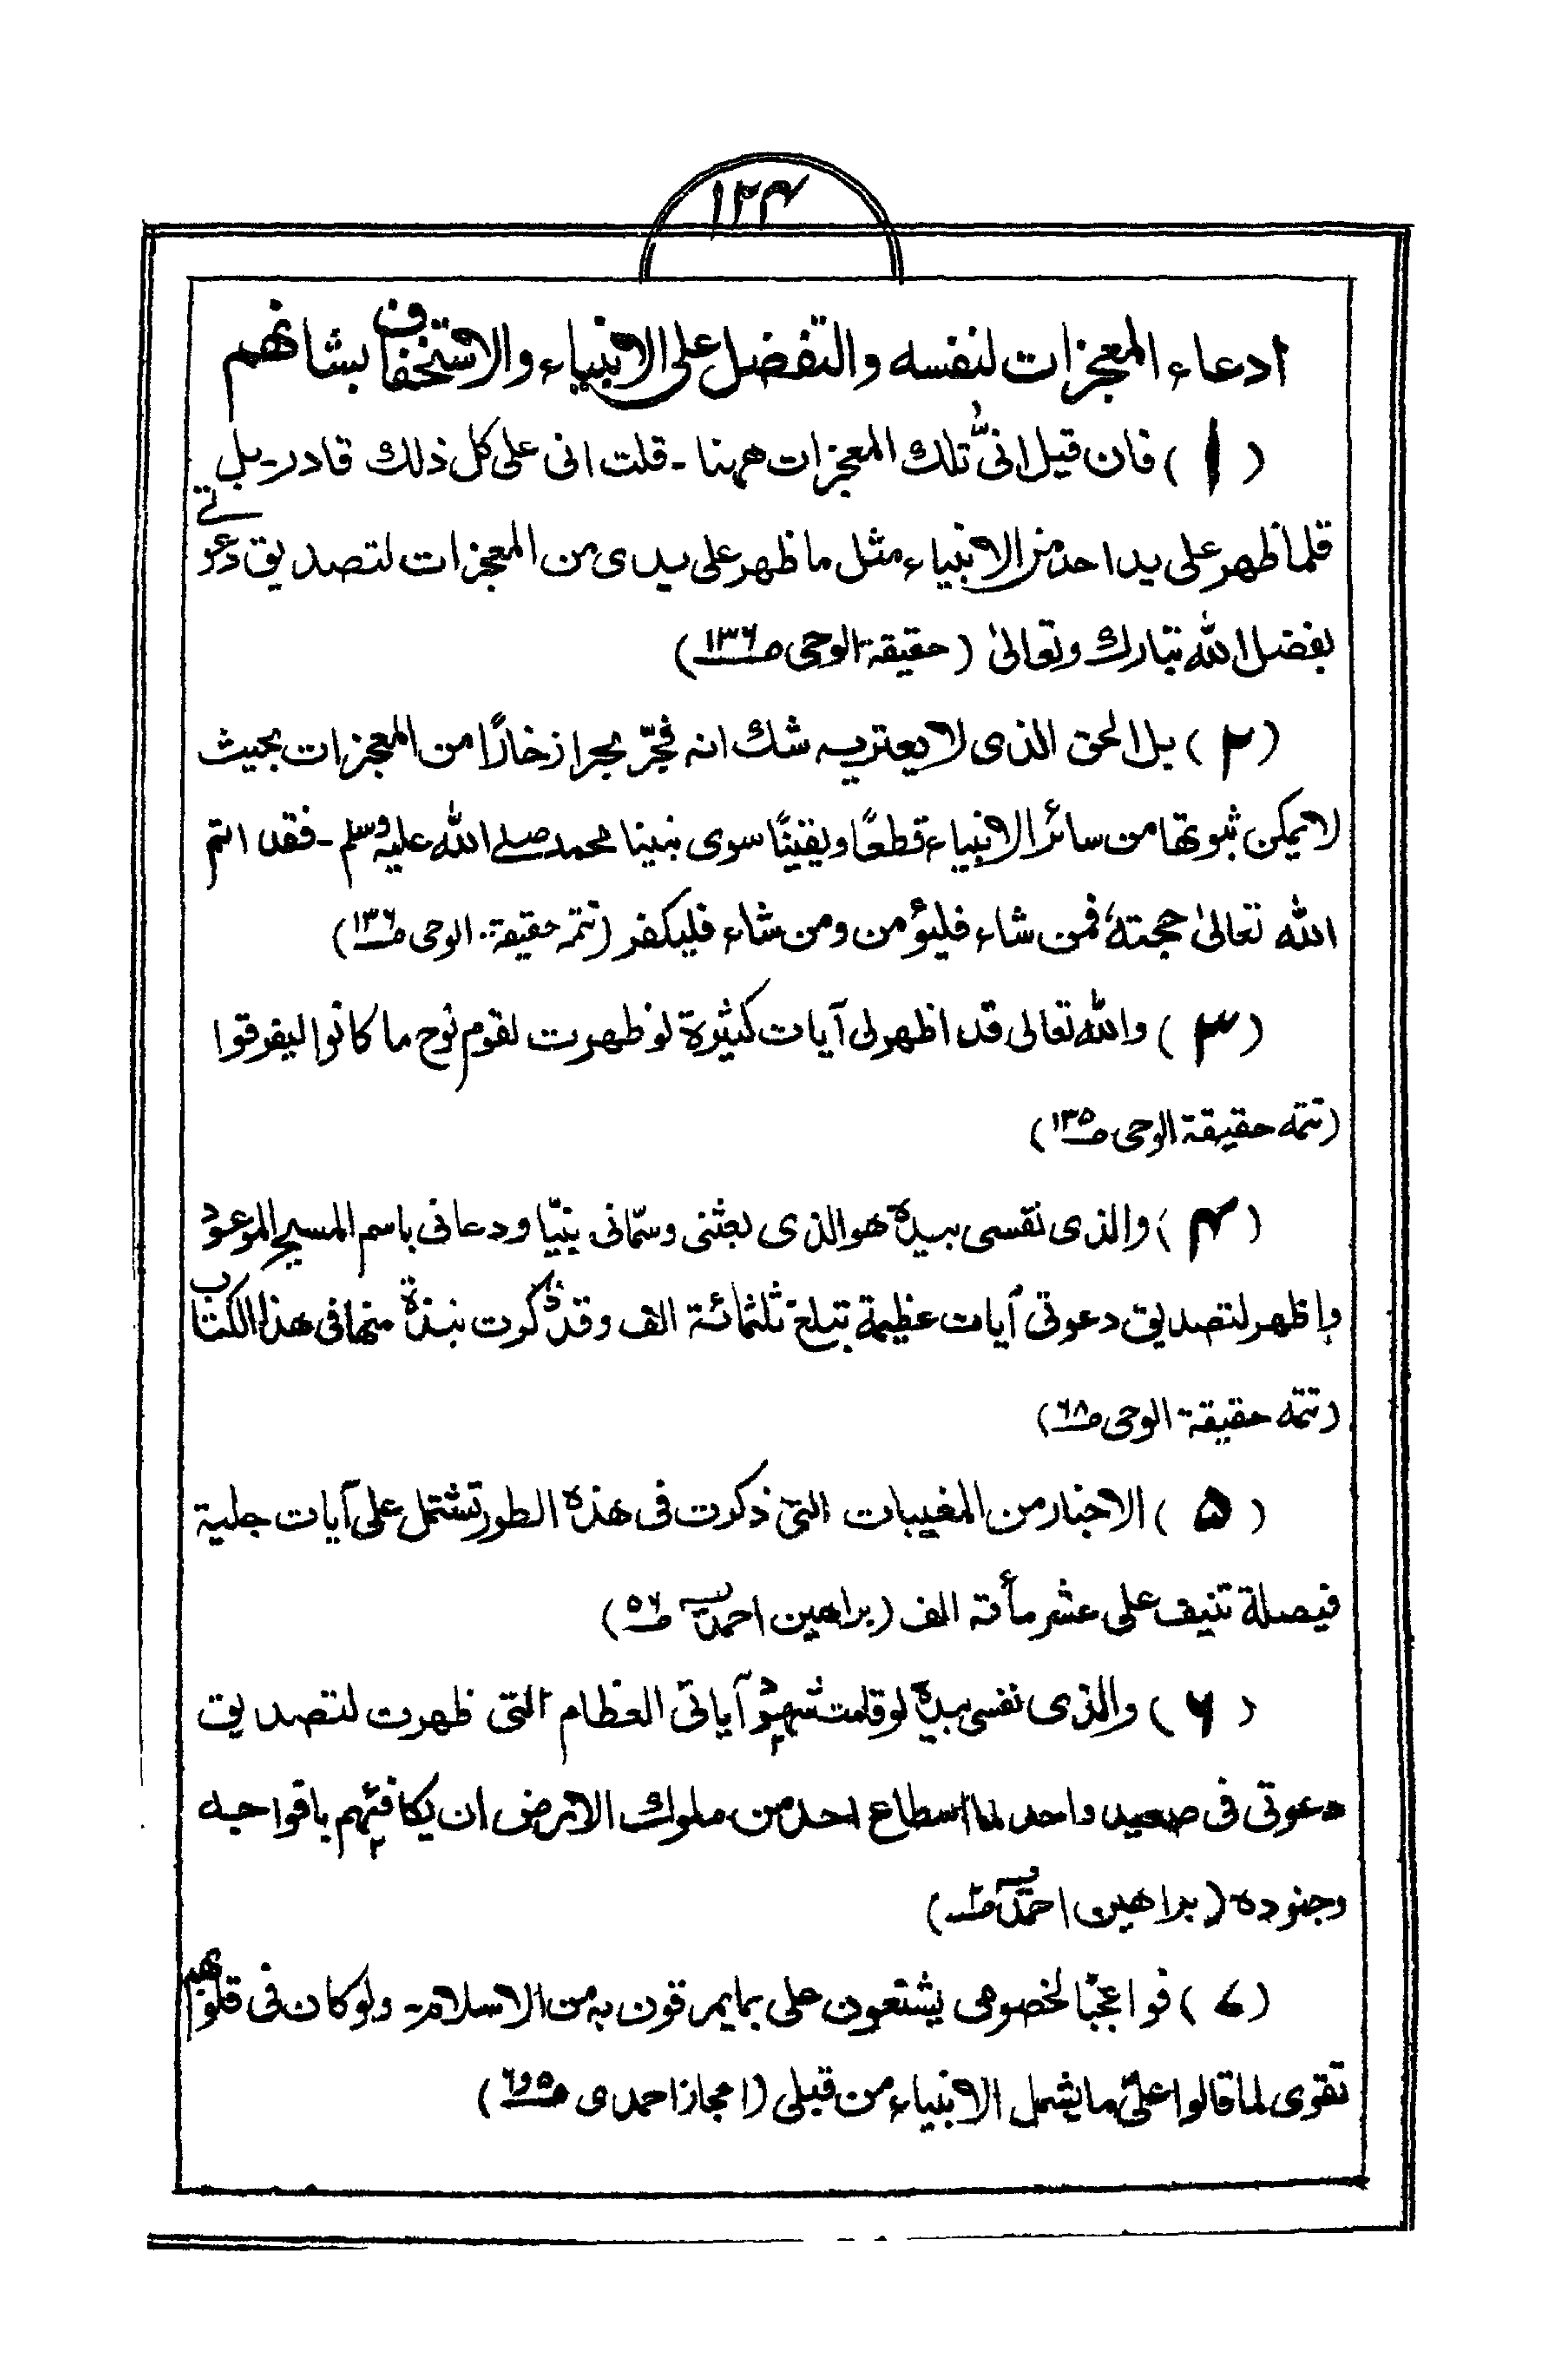 ۱۲۴
ادعاء المعجزات لنفسه والتفضل على الانبياء والاستخفاف بشانهم
(۱) فان قيل انىّ تلك المعجزات ههنا ـ قلت انى على كل ذلك قادر ـ بل
قلما ظهر على يد احد من الانبياء مثل ما ظهر على يدى من المعجزات لتصديق دعوتى
بفضل الله تبارك وتعالىٰ (حقيقة الوحى صـ۱۳۶)
(۲) بل الحق الذى لا يعتريه شك انه فجّر بحرا زخارًا من المعجزات بحيث
لا يمكن ثبوتها من سائر الانبياء قطعًا ويقينًا سوى نبينا محمد صلے الله عليه وسلم ـ فقد اتم
الله تعالىٰ حجته فمن شاء فليؤمن ومن شاء فليكفر (تتمه حقيقة الوحى صـ۱۳۶)
(۳) والله تعالى قد اظهر لى آيات كثيرة لو ظهرت لقوم نوح ما كانوا ليفرقوا
(تتمه حقيقة الوحى صـ۱۳۵)
(۴) والذى نفسى بيده هو الذى بعثنى وسمّانى نبيّا ودعانى باسم المسيح الموعود
واظهر لتصديق دعوتى آيات عظيمة تبلغ ثلثمائة الف وقد ذكرت نبذة منها فى هذا الكتاب
(تتمه حقيقة الوحى صـ۶۸)
(۵) الاخبار من المغيبات التى ذكرت فى هذه الطور تشتمل على آيات جلية
فيصلة تنيف على عشر مأته الف (براهين احمديه صـ۵۶)
(۶) والذى نفسى بيده لو قامت شهود آياتى العظام التى ظهرت لتصديق
دعوتى فى صعيد واحد لما اسطاع احد من ملوك الارض ان يكافئهم بافواجه
وجنوده (براهين احمديه
(۷) فواعجبًا لخصومى يشنعون على بما يمرقون به من الاسلام ـ ولو كان فى قلوبهم
تقوى لما قالوا علىّ ما يشمل الانبياء من قبلى (اعجاز احمدى صـ۵ و۶)